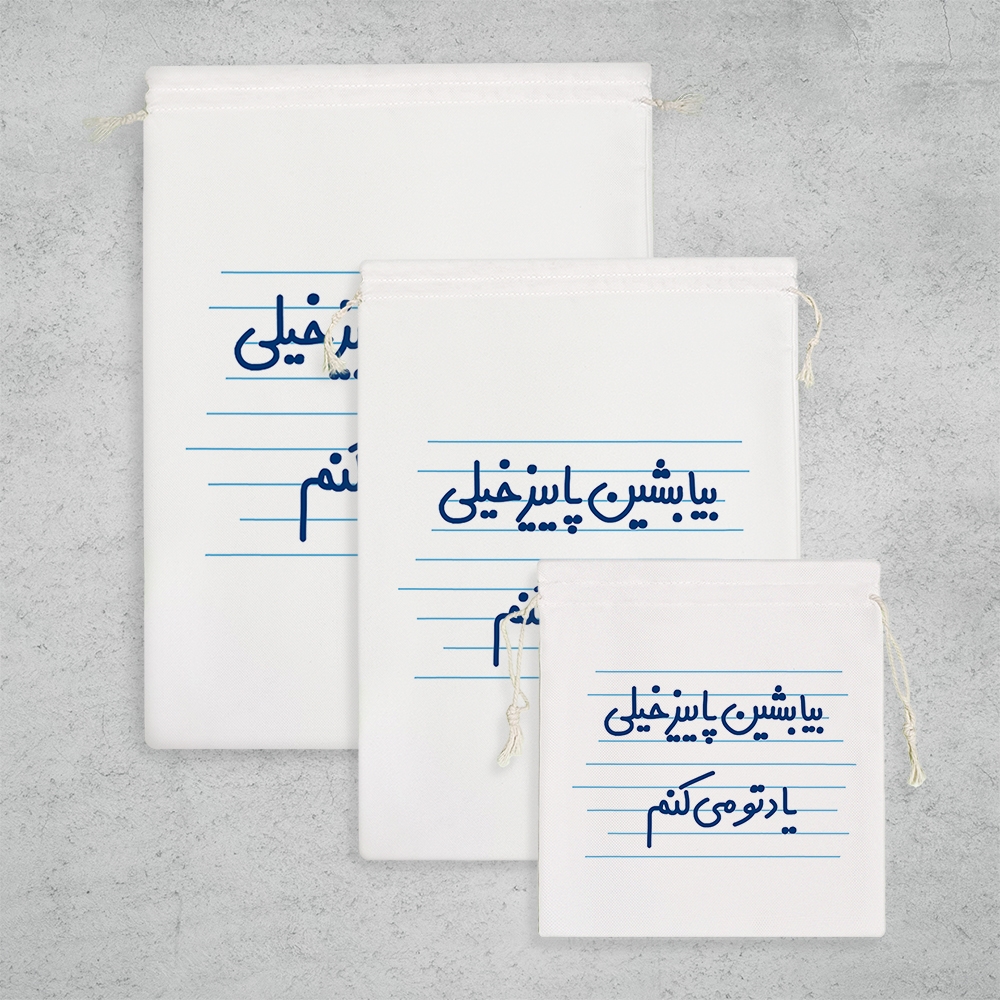 خیلی
بیا بشین پاییز خیلی
بیا بشین پاییز خیلی
یاد تو می کنم